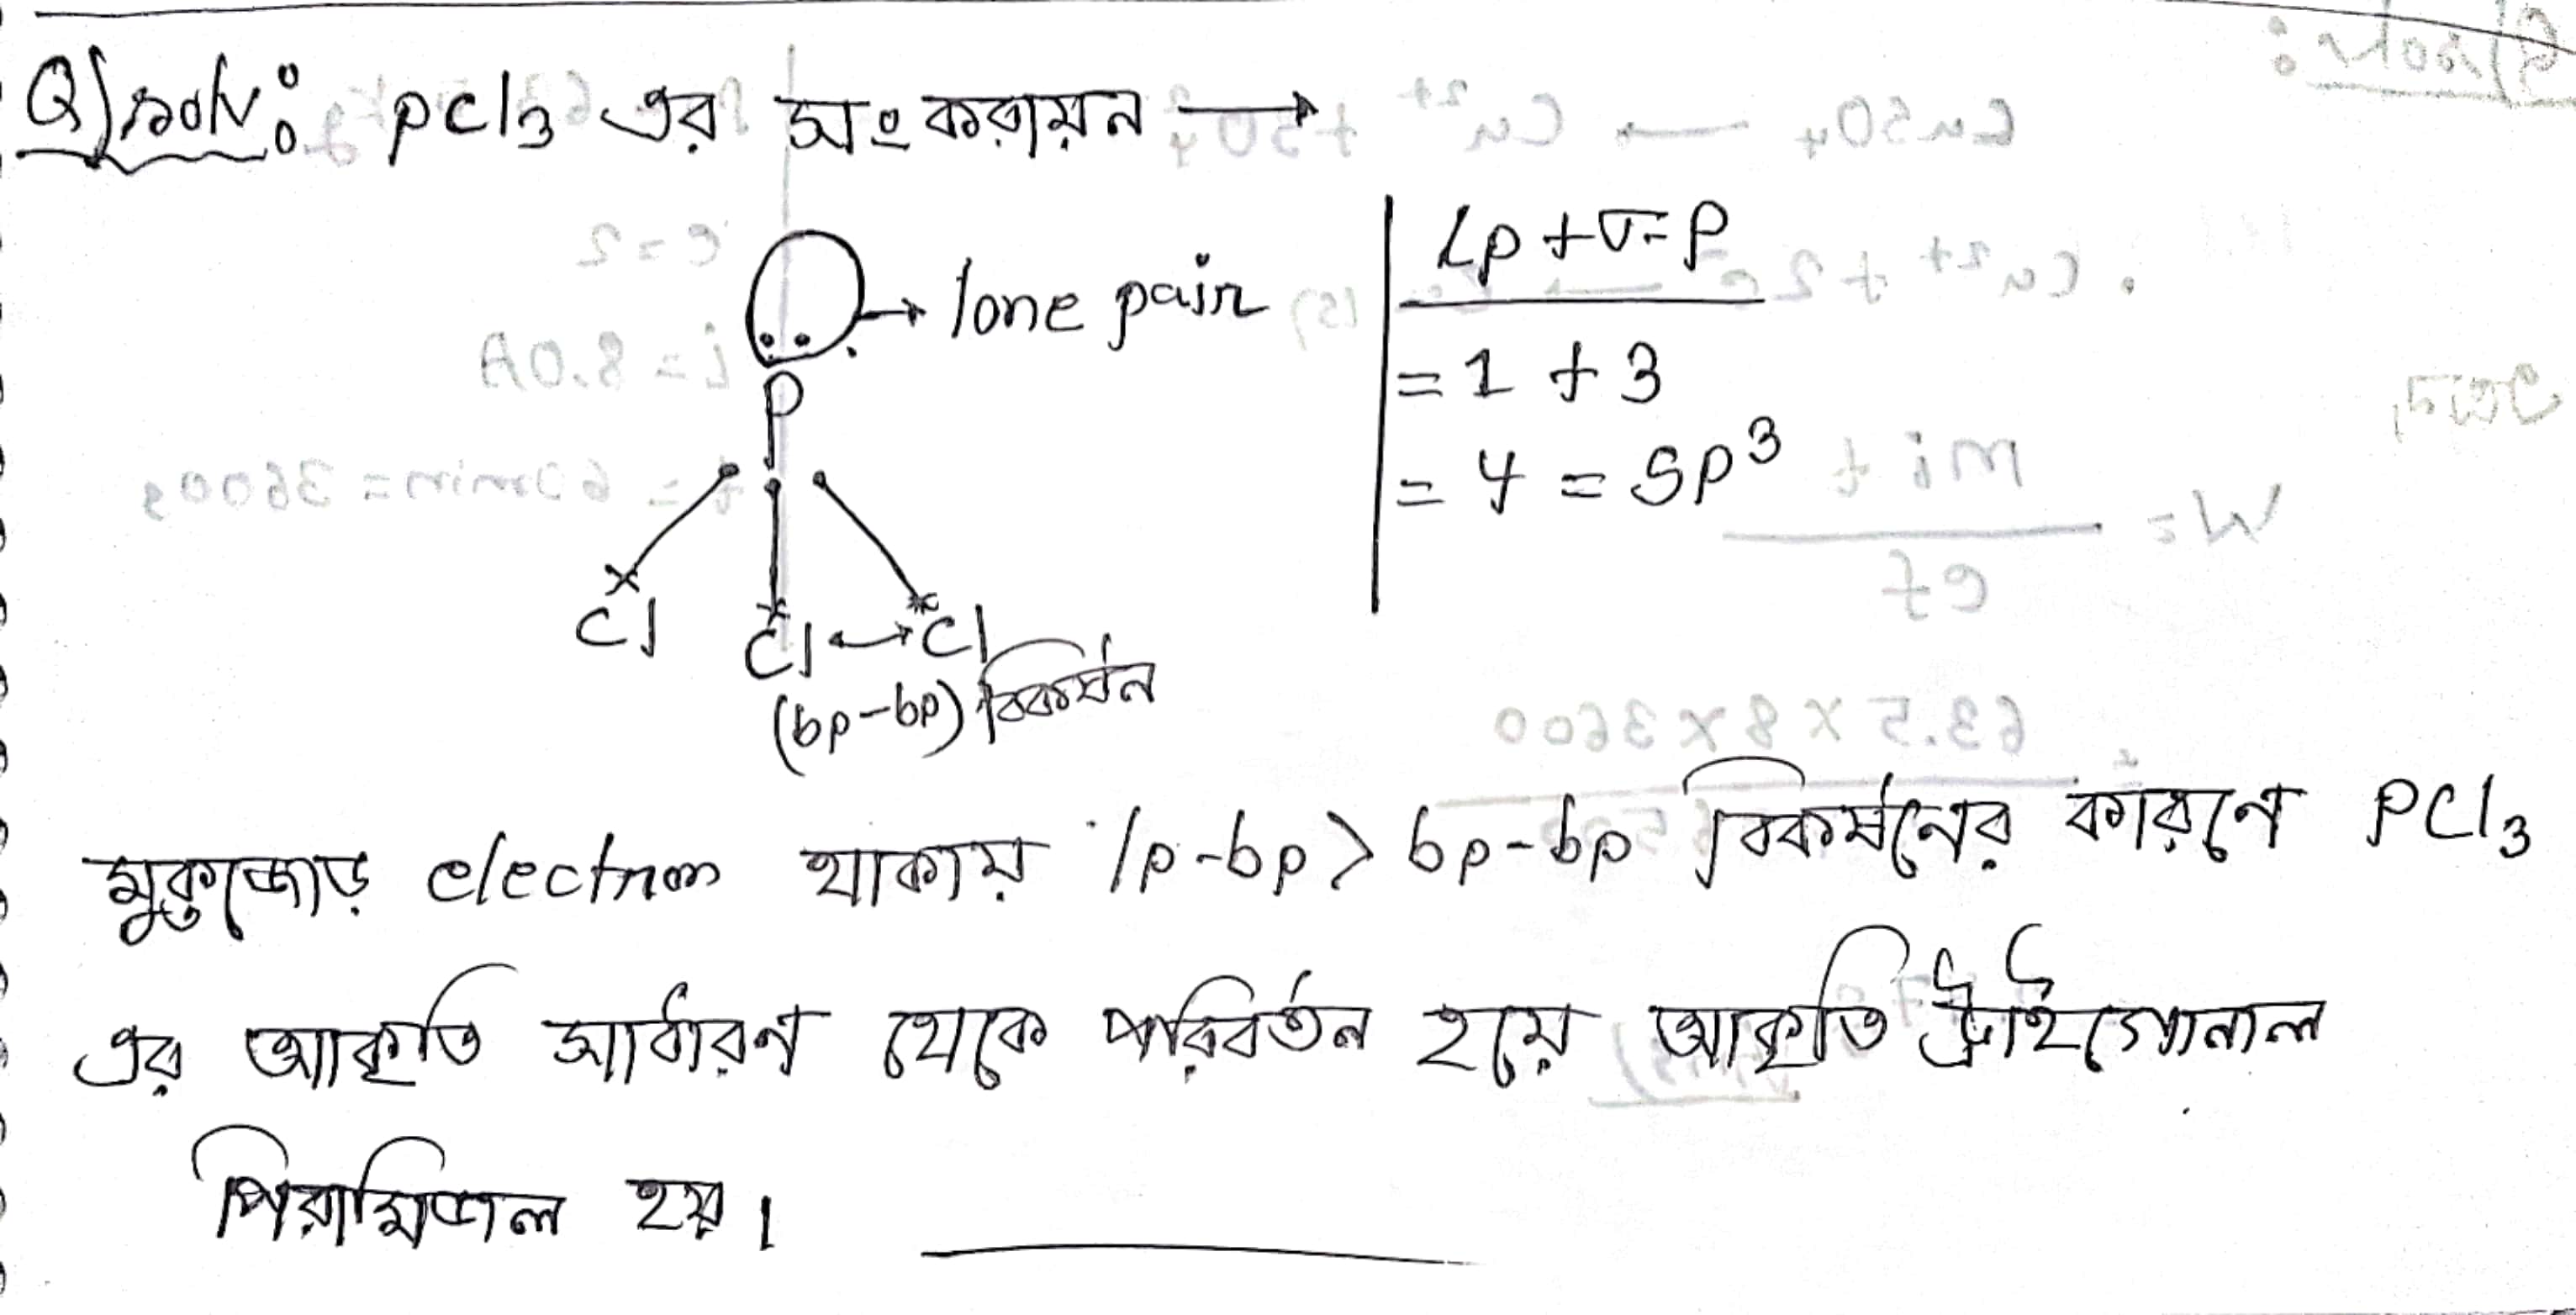 Q) solv: pcl₃ এর সংকরায়ন →
→ lone pair
P
Cl Cl ↔ Cl
(bp-bp) বিকর্ষন
Lp + σ-p
= 1 + 3
= 4 = SP³
মুক্তজোড় electron থাকায় lp-bp > bp-bp বিকর্ষনের কারনে PCl₃
এর আকৃতি সাধারন থেকে পরিবর্তন হয়ে আকৃতি ট্রাইগোনাল
পিরামিডাল হয়।